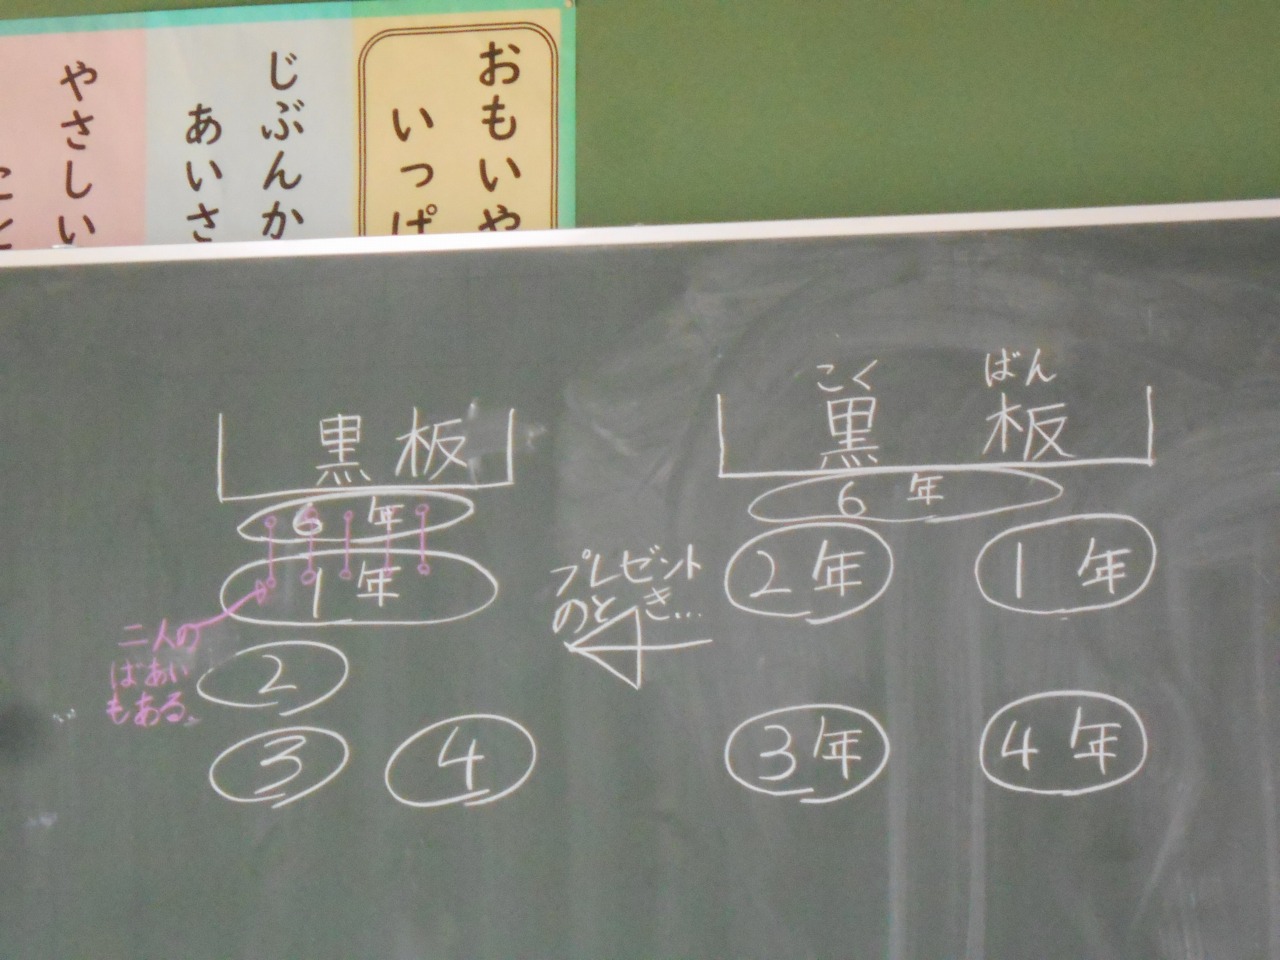 おもいや
いっぱ
じぶんか
あいさ
やさしい
こと
黒板
6年
1年
二人の
ばあい
もある。
2
3 4
プレゼント
のとき…
こく ばん
黒板
6年
2年 1年
3年 4年